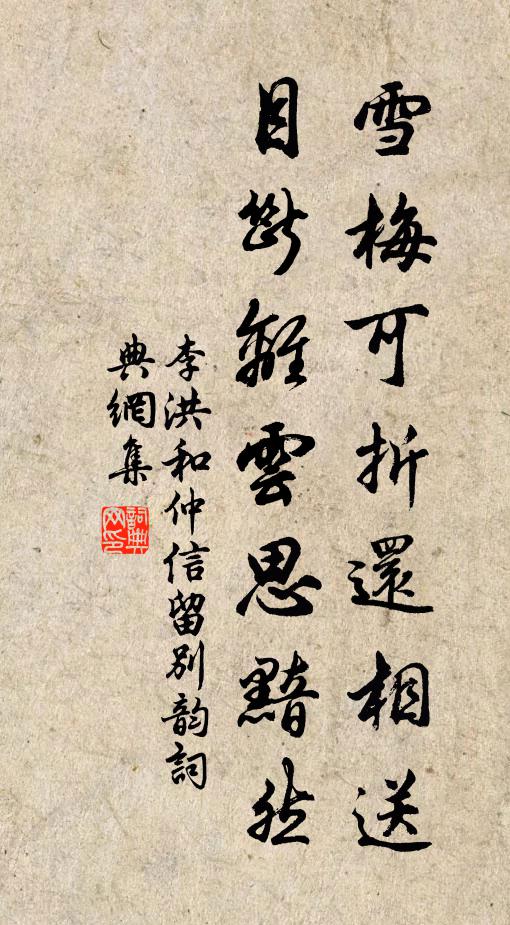 雪梅可折還相送
目斷離雲思黯然
李洪和仲信留別韵詞
典網集
詞典網印